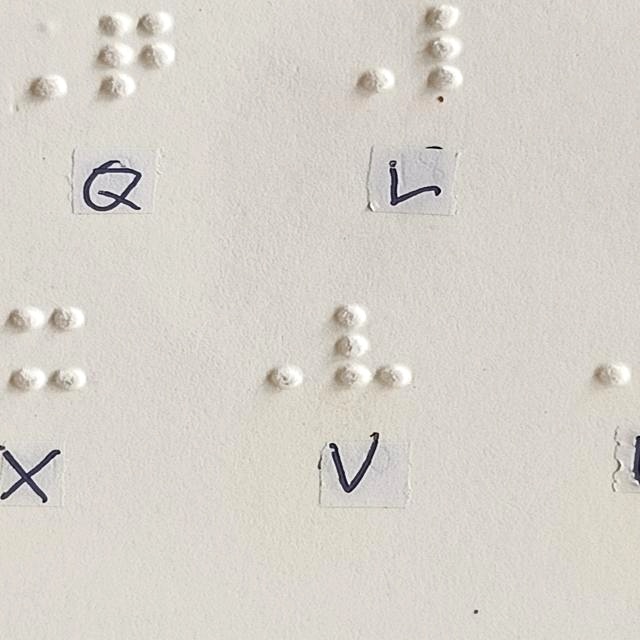 ⠠⠟ ⠠⠇
Q L
⠭ ⠠⠧
X V